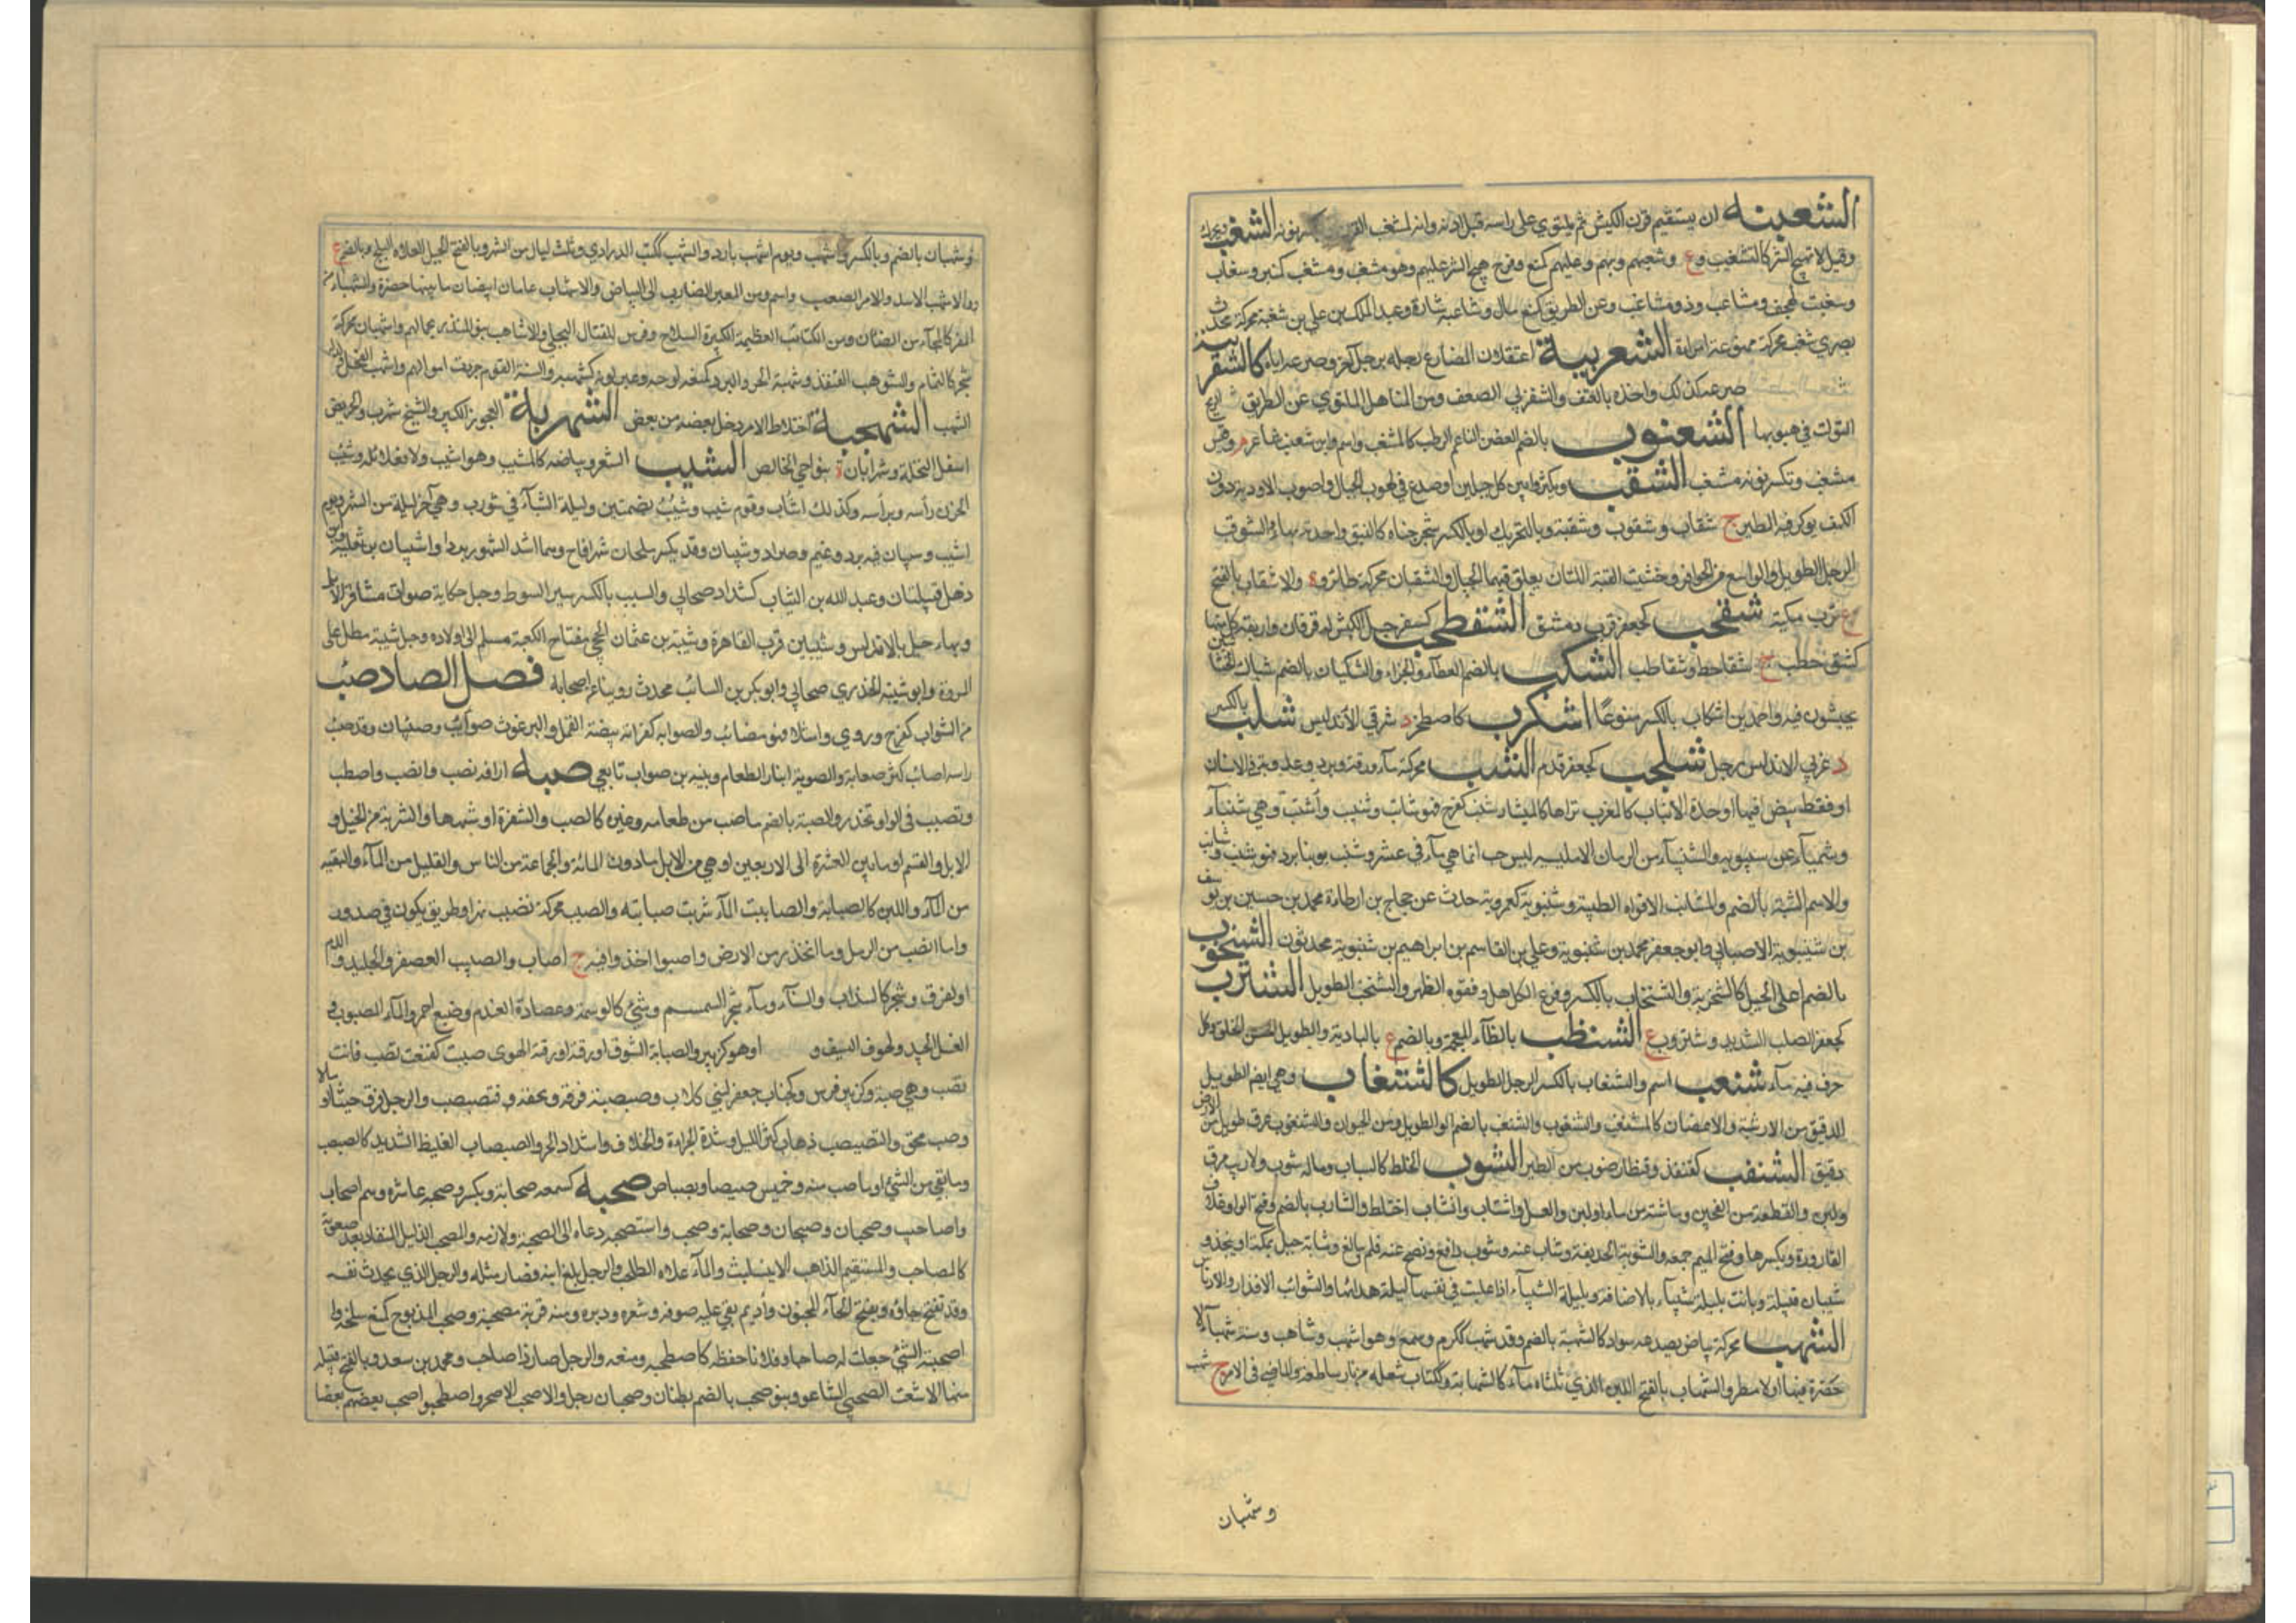 الشعبنه ان يستقيم قرن الكبش ثم يلتوي على راسه قبل اذنه وانه لمشغب القرن بكسر نونه الشغب ويحرك
وقيل لا تهيج الشر كالتشغيب وع وشغبهم وبهم وعليهم كمنع وفرح هيج الشر عليهم وهو مشغب ومشغب كمنبر وشغاب
وشغب كهجف ومشاغب وذو مشاغب وعن الطريق كمنع مال وشاغبه شارة وعبد الملك بن علي بن شغبة محركة محدث
بصري شغب محركة ممنوعة امراة الشغربية اعتقلان المصارع رجله برجل آخر وصرعه اياه كالشغر
صرعه كذلك واخذه بالعنف والشغزبي الصعب ومن المناهل الملتوي عن الطريق
التوت في هبوبها الشغنوب بالضم الغصن الناعم الرطب كالمشغب واسم وابن شعيب شاعر م وتيس
مشغب وتكسر نونه مشغب الشقب ويكسر مابين كل جبلين او صدع في لهوب الجبال ولصوب الاودية دون
الكهف يوكر فيه الطير ج شقاب وشقوب وشقبة وبالتحريك او بالكسر شجر جناه كالنبق واحدته بهاء والشوقب
الرجل الطويل والواسع من الحوافر وخشبتا القتب اللتان يعلق فيهما الحبال والشقبان محركة طائر وة والاشقاب بالفتح
ع قرب مكة شقحب كجعفر قرب دمشق الشقحطب كسفرجل الكبش له قرنان واربعة كل منها
كشق حطب ج شقاحط وشقاطب الشكب بالضم العطاء والجزاء والشكبان بالضم شباك للحشا
يحيشون فيه واحمد بن اشكاب بالكسر ممنوعا اشكرب كاصطخر د شرقي الاندلس شلب بالكسر
د غربي الاندلس رجل شلحب كجعفر فدم الشنب محركة ماء ورقة وبرد وعذوبة في الاسنان
او نقط بيض فيها او حدة الانياب كالغرب تراها كالمنشار شنب كفرح فهو شانب وشنيب واشنب وهي شنباء
وشمباء عن سيبويه والشنباء من الرمان الامليسية ليس حب انما هي ماء في عشر وشنب يومنا برد فهو شنب وشانب
والاسم الشنبة بالضم والمشانب الافواه الطيبة وشنبوية كعمروية حدث عن حجاج بن ارطاة ومحمد بن حسين بن يوسف
بن شنبوية الاصبهاني وابو جعفر محمد بن شنبوية وعلي بن القاسم بن ابراهيم بن شنبوية محدثون الشنخوب
بالضم اعلى الجبل كالشنخوبة والشنخاب بالكسر وفرع الكاهل وفقرة الظهر والشنخب الطويل الشنزب
كجعفر الصلب الشديد وشنزوب ع الشنظب بالظاء المعجمة وبالضم ع بالبادية والطويل الحسن الخلق وكل
جرف فيه ماء شنعب اسم والشنعاب بالكسر الرجل الطويل كالشنغاب وهي ايضا الطويل
الدقيق من الارشية والاغصان كالمشنغب والشنغوب والشنغب بالضم او الطويل ومن الحيوان والشنغوب عرق طويل من الارض
دقيق الشنقب كقنفذ وقنطار ضرب من الطير الشوب الخلط كالشياب وماله شوب ولا روب مرق
ولبن والقطعة من العجين وما شبته من ماء او لبن والعسل واشتاب وانشاب اختلط والشاب بالضم وفتح الواو غلاف
القارورة ويكسرها وفتح الميم جمعه والشوبة الخديعة وشاب عنه وشوب دافع ونصح عنه فلم يبالغ وشابة جبل بمكة او بنجد و
شيبان قبيلة وباتت بليلة شيباء بالاضافة وبليلة الشيباء اذا غلبت في نفسها ليلة هدائها والشوائب الاقذار والادناس
الشهب محركة بياض يصدعه سواد كالشهبة بالضم وقد شهب ككرم وسمع وهو اشهب وشاهب وسنة شهباء لا
خضرة فيها او لا مطر والشهاب بالفتح اللبن الذي ثلثاه ماء كالشهابة وككتاب شعلة من نار ساطعة والماضي في الامر ج شهب
وشهبان
وشهبان بالضم وبالكسر واشهب ويوم اشهب بارد والشهب ككتب الدراري وثلاث ليال من الشهر وبالفتح الجبل العلاه الثلج وبالضم ع
والاشهب الاسد والامر الصعب واسم ومن العنبر الضارب الى البياض والاشهبان عامان ابيضان ما بينهما خضرة والشهباء من
المعز كالملحاء من الضأن ومن الكتائب العظيمة الكثيرة السلاح وفرس للقتال البجلي والاشاهب بنو المنذر لجمالهم واشهبان محركة
شجر كالثمام والشوهب القنفذ وشهبه الحر والبرد كمنعه لوحه وغير لونه كشهبه والسنة القوم جردت اموالهم واشهب الفحل ولد له
الشهب الشهجبة اختلاط الامر دخل بعضه من بعض الشهربة العجوز الكبير والشيخ شهرب والحويض
اسفل النخلة وشرابان ة بنواحي الخالص الشيب الشعر وبياضه كالمشيب وهو اشيب ولا فعلاء له وشيب
الحزن رأسه وبرأسه وكذلك اشاب وقوم شيب وشيب بضمتين وليلة الشيباء في شوب وهي آخر ليلة من الشهر ويوم
اشيب وشيبان فيه برد وغيم وصراد وشيبان وقد يكسر وملحان شهرا قماح وهما اشد الشهور بردا وشيبان بن ثعلبة وابن
ذهل قبيلتان وعبد الله بن الشياب كشداد صحابي والشيب بالكسر سير السوط وجبل حكاية صوت مشافر الابل
وبهاء جبل بالاندلس وشيبين قرب القاهرة وشيبة بن عثمان الحجبي مفتاح الكعبة مسلم الى اولاده وجبل شيبة مطل على
المروة وابو شيبة الخدري صحابي وابو بكر بن الشائب محدث روينا عن اصحابه فصل الصاد صئب
من الشراب كفرح وروي وامتلا فهو مصائب والصوابه كغرابة بيضة القمل والبرغوث صوآب وصئبان وقد صئب
راسه اصاب كثر صئبانه والصوبة انبار الطعام ونبيه بن صواب تابعي صبه اراقه نصب وانصب واصطب
وتصبب في الواد تحذر والصبة بالضم ما صب من طعام وغيره كالصب والسفرة او شبهها والسربة من الخيل و
الابل والغنم او ما بين العشرة الى الاربعين او هي من الابل ما دون المائة والجماعة من الناس والقليل من الماء والبقية
من الماء واللبن كالصبابة وتصاببت الماء شربت صبابته والصبب محركة تصبب نهر او طريق يكون في حدور
وما انصب من الرمل وما انحدر من الارض واصبوا اخذوا فيه ج اصباب والصبيب العصفر والجليد والدم
والعرق وشجر كالسذاب والسناء وماء شجر السمسم وشيء كالوسمة وعصارة العندم وصبغ احمر والماء المصبوب و
العسل الجيد وطرف السيف و او هو كزبير والصبابة الشوق او رقته او رقة الهوى صببت كقنعت تصب فانت
صب وهي صبة وكزبير فرس وكخباب جعفر لبني كلاب وصبصبه فرقه ومحقه فتصبصب والرجل فرق جيشا او مالا
وصب محق والتصبصب ذهاب اكثر الليل وشدة الجراءة والخلاف واشتداد الحر والصبصاب الغليظ الشديد كالصبصب
وما بقي من الشيء او ما صب منه وخمس صبصاب بصباص صحبه كسمعه صحابة ويكسر وصحبه عاشره وهم اصحاب
واصاحيب وصحبان وصحاب وصحابة وصحب واستصحبه دعاه الى الصحبة ولازمه والمصحب الذليل المنقاد بعد صعوبة
كالمصاحب والمستقيم الذاهب لا يتلبث والماء علاه الطحلب والرجل بلغ ابنه فصار مثله والرجل الذي يحدث نفسه
وقد تفتح حاؤه وبفتح الحاء المجنون واديم بقي عليه صوفه وشعره ووبره ومنه قربة مصحبة وصحب المذبوح كمنع سلخه وا
اصحبته الشيء جعلته له صاحبا وفلانا حفظه كاصطحبه ومنعه والرجل صار ذا صاحب ومحمد بن سعد وبالفتح قبيلة
منها الاشعث الصحبي الشاعر وبنو صحب بالضم بطنان وصحبان رجل والاصحب الاصحر واصطحبوا صحب بعضهم بعضا